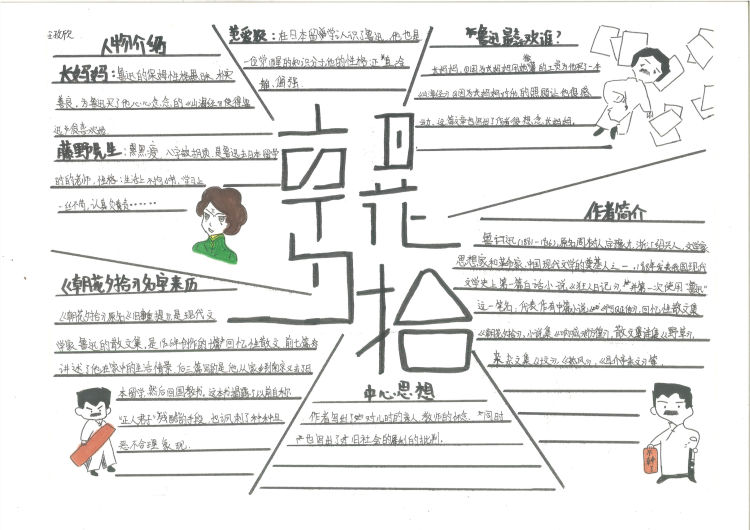 人物介绍
长妈妈：鲁迅的保姆性格愚昧、朴实
善良，为鲁迅买了他心心念念的《山海经》使得鲁
迅多很喜欢她
藤野先生：黑黑瘦，八字胡，是鲁迅去日本留学
时的老师，性格：生活上不拘小节，学习上
一丝不苟，认真负责……
范爱农：在日本留学认识了鲁迅，他也是
一位觉醒的知识分子他的性格正直，冷
静，倔强
鲁迅最喜欢谁？
长妈妈，因为长妈妈用她的工资为他买一本
《山海经》因为长妈妈对他的照顾让他很感
动，这篇文章也写出了作者很想念长妈妈。
朝花
夕拾
作者简介
鲁迅(1881-1936)，原名周树人字豫才，浙江绍兴人，文学家
思想家和革命家，中国现代文学的奠基人之一，1918年发表我国现代
文学史上第一篇白话小说《狂人日记》，并第一次使用"鲁迅"
这一笔名，代表作有中篇小说《阿Q正传》，回忆性散文集
《朝花夕拾》，小说集《呐喊》《彷徨》，散文诗集《野草》，
杂文集《坟》，《热风》，《且介亭杂文》等
《朝花夕拾》名字来历
《朝花夕拾》原名《旧事重提》是现代文
学家鲁迅的散文集，是1926年创作的十篇回忆性散文，前七篇
讲述了他在家中的生活情景，后三篇写的是他从家乡到南京又去了日
本留学，然后回国教书。这本书揭露了以前自称
"正人君子"残酷的手段，也讽刺了种种
恶不合理象现。
中心思想
作者写出了她对儿时的亲人、教师的怀念，同时
也写出了对旧社会的犀利的批判。